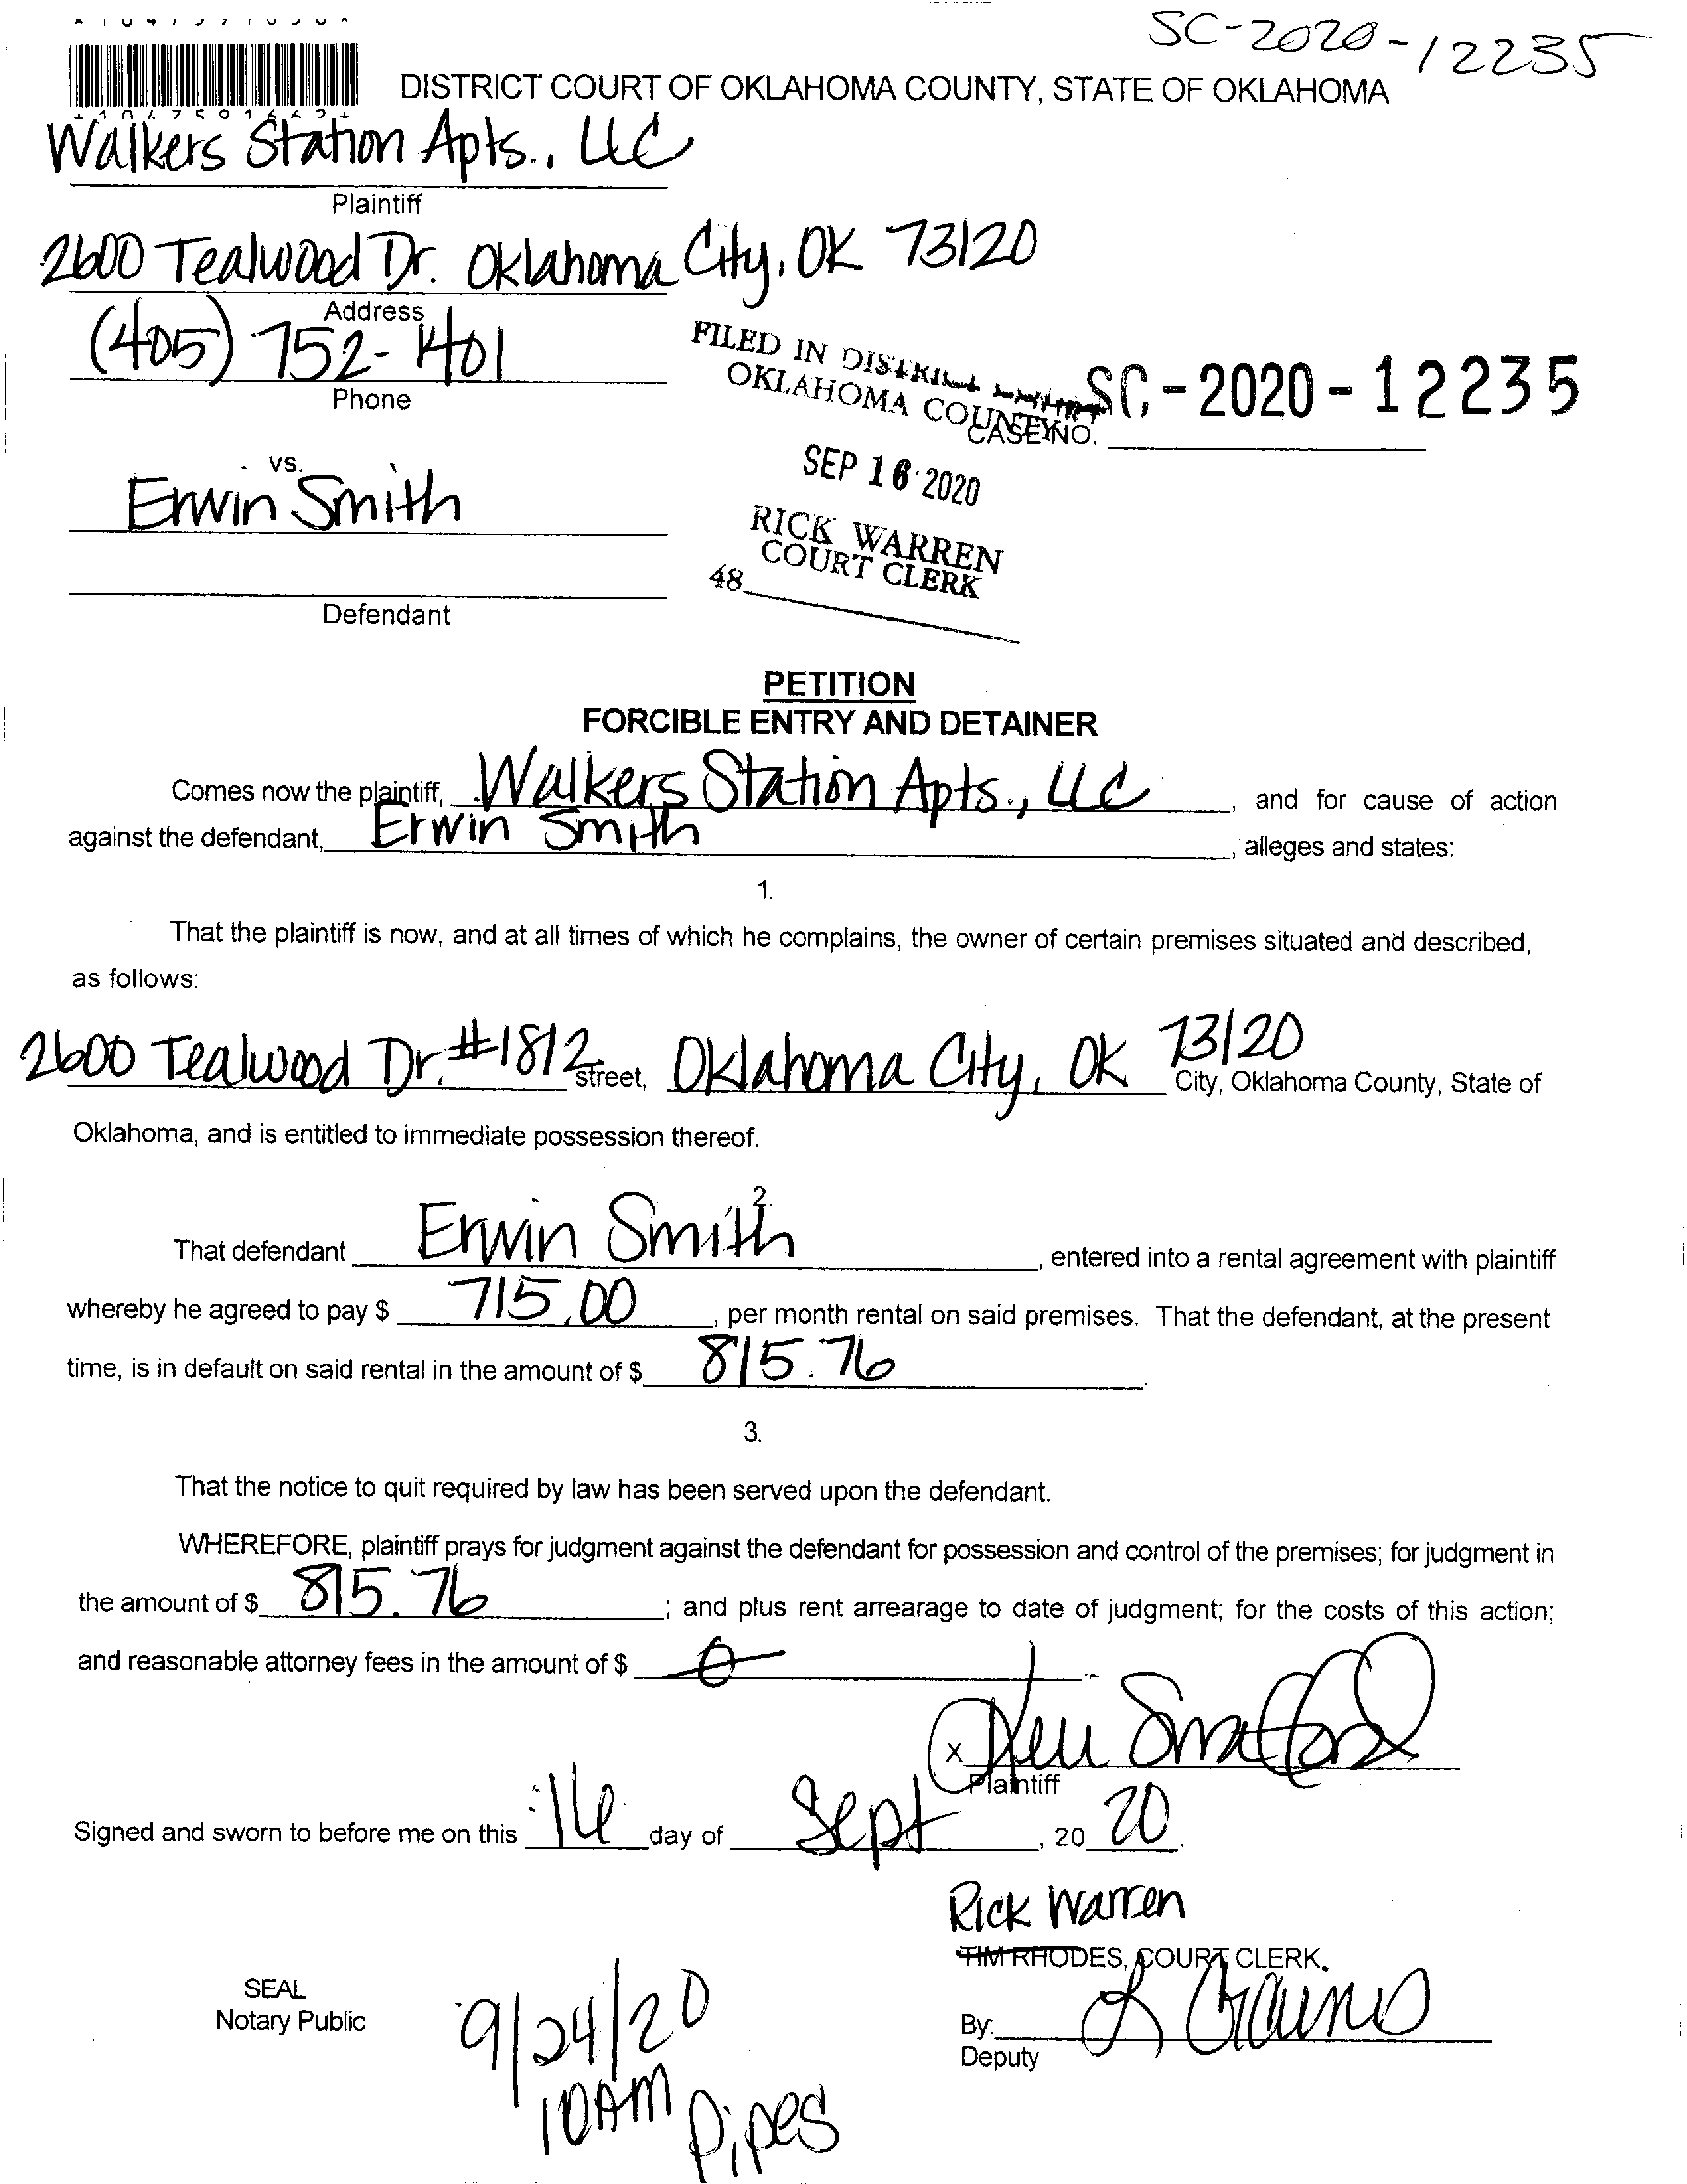 SC-2020-12235
DISTRICT COURT OF OKLAHOMA COUNTY, STATE OF OKLAHOMA
Walkers Station Apts., LLC
Plaintiff
2600 Tealwood Dr. Oklahoma City, OK 73120
Address
(405) 752-1401
Phone
FILED IN DISTRICT COURT
OKLAHOMA COUNTY
SC-2020-12235
CASE NO.
SEP 16 2020
RICK WARREN
COURT CLERK
48
vs.
Erwin Smith
Defendant
PETITION
FORCIBLE ENTRY AND DETAINER
Comes now the plaintiff, Walkers Station Apts., LLC, and for cause of action
against the defendant, Erwin Smith, alleges and states:
1.
That the plaintiff is now, and at all times of which he complains, the owner of certain premises situated and described,
as follows:
2600 Tealwood Dr. #1812 street, Oklahoma City, OK 73120 City, Oklahoma County, State of
Oklahoma, and is entitled to immediate possession thereof.
2.
That defendant Erwin Smith, entered into a rental agreement with plaintiff
whereby he agreed to pay $ 715.00, per month rental on said premises. That the defendant, at the present
time, is in default on said rental in the amount of $ 815.76
3.
That the notice to quit required by law has been served upon the defendant.
WHEREFORE, plaintiff prays for judgment against the defendant for possession and control of the premises; for judgment in
the amount of $ 815.76; and plus rent arrearage to date of judgment; for the costs of this action;
and reasonable attorney fees in the amount of $ 0
x
Plaintiff
Signed and sworn to before me on this 16 day of Sept, 2020.
Rick Warren
TIM RHODES, COURT CLERK.
SEAL
Notary Public
By:
Deputy
9/24/20
10AM
Pipes